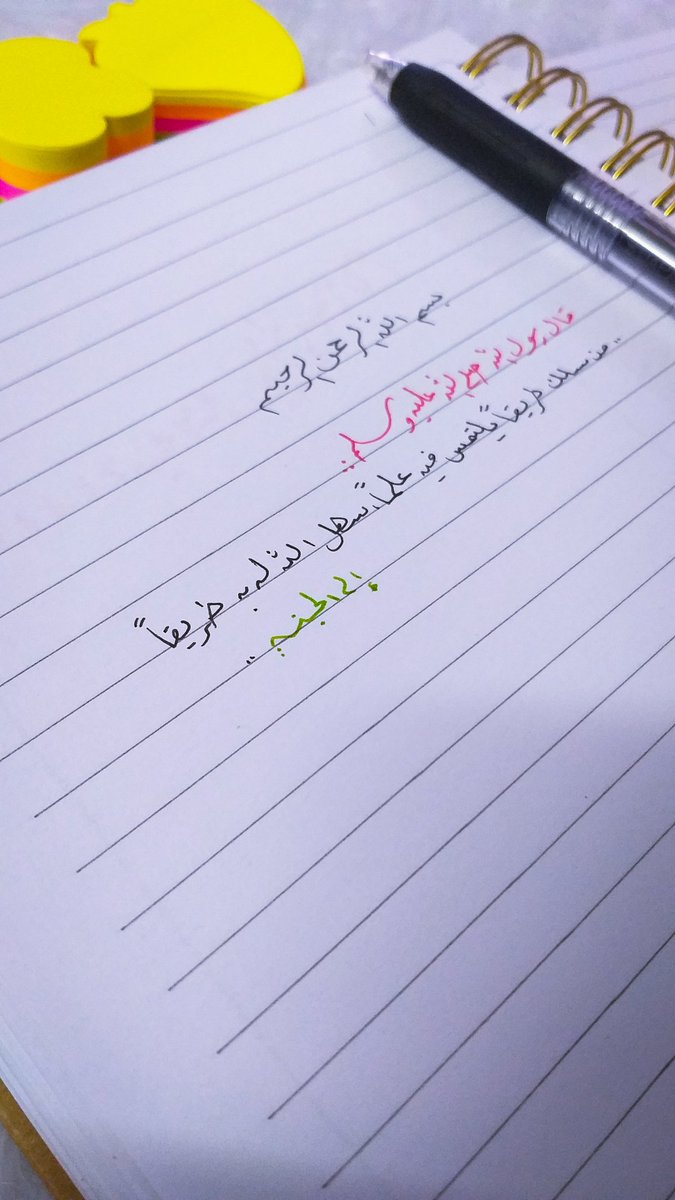 بسم الله الرحمن الرحيم
قال رسول الله صلى الله عليه وسلم:
"من سلك طريقاً يلتمس فيه علماً، سهل الله له به طريقاً
إلى الجنة"